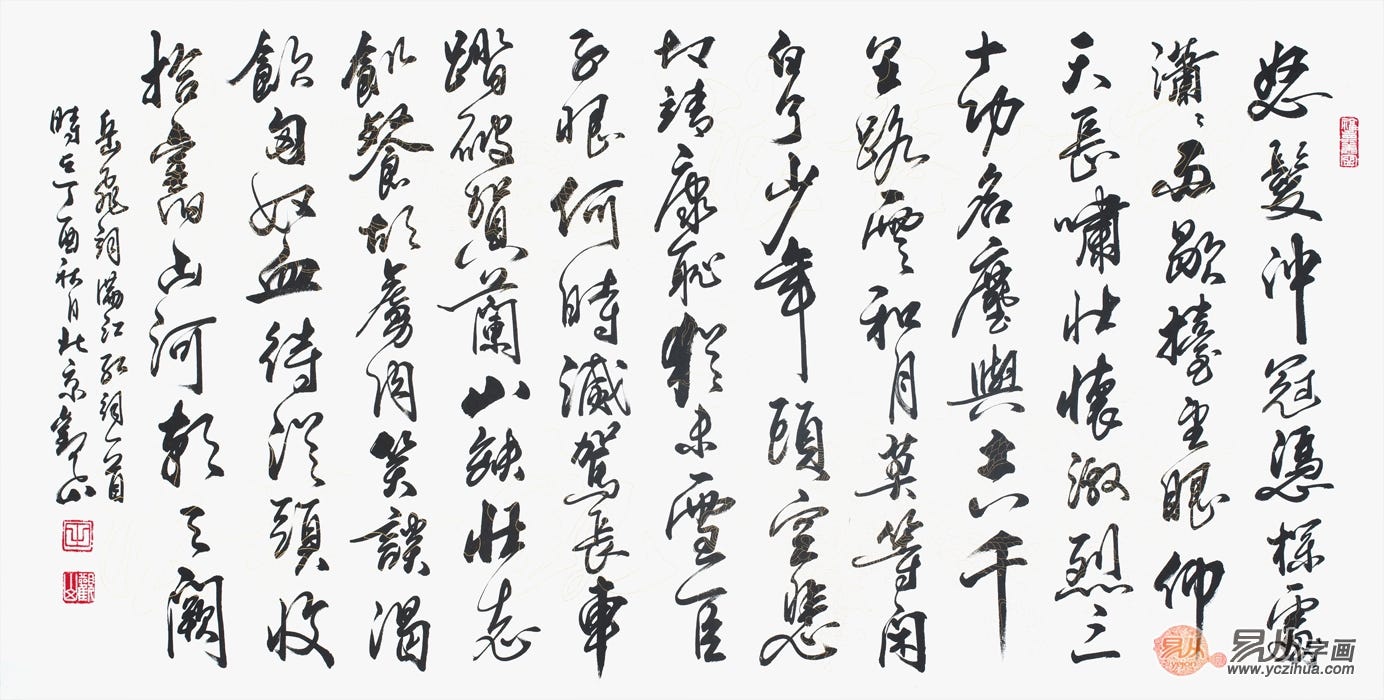 怒髮沖冠憑欄處
瀟瀟雨歇擡望眼仰
天長嘯壯懷激烈三
十功名塵與土八千
里路雲和月莫等閑
白了少年頭空悲
切靖康恥猶未雪臣
子恨何時滅駕長車
踏破賀蘭山缺壯志
飢餐胡虜肉笑談渴
飲匈奴血待從頭收
拾舊山河朝天闕
岳飛詞滿江紅詞一首
時在丁酉秋月北京
易从字画
www.yczihua.com